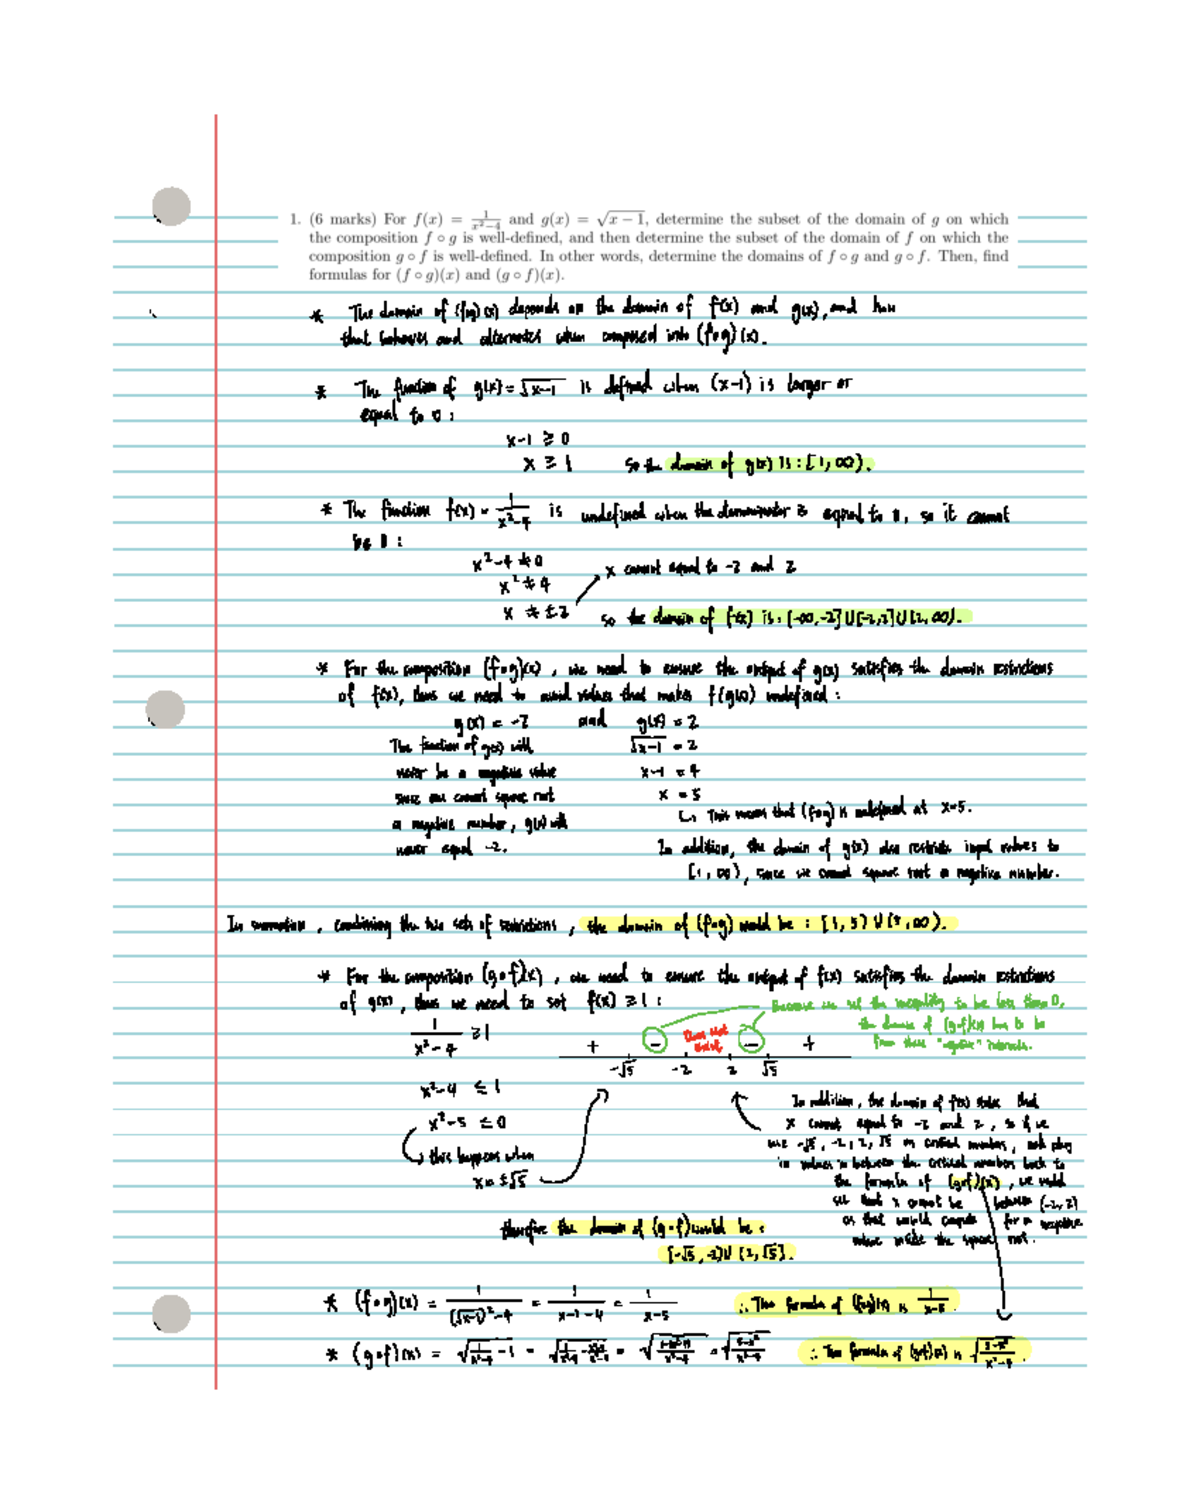 1. (6 marks) For f(x) = 1/(x²−4) and g(x) = √(x − 1), determine the subset of the domain of g on which
the composition f ∘ g is well-defined, and then determine the subset of the domain of f on which the
composition g ∘ f is well-defined. In other words, determine the domains of f ∘ g and g ∘ f. Then, find
formulas for (f ∘ g)(x) and (g ∘ f)(x).
* The domain of (f∘g)(x) depends on the domain of f(x) and g(x), and how
that behaves and alternates when composed into (f∘g)(x).
* The function of g(x) = √(x−1) is defined when (x−1) is larger or
equal to 0:
x−1 ≥ 0
x ≥ 1 So the domain of g(x) is: [1, ∞).
* The function f(x) = 1/(x²−4) is undefined when the denominator is equal to 0, so it cannot
be 0:
x²−4 ≠ 0
x² ≠ 4
x ≠ ±2
x cannot equal to −2 and 2
so the domain of f(x) is: [−∞,−2]∪[−2,2]∪[2,∞).
* For the composition (f∘g)(x), we need to ensure the output of g(x) satisfies the domain restrictions
of f(x), thus we need to avoid values that makes f(g(x)) undefined:
g(x) = −2 and g(x) = 2
The function of g(x) will
never be a negative value
since we cannot square root
a negative number, g(x) will
never equal −2.
√(x−1) = 2
x−1 = 4
x = 5
↳ This means that (f∘g) is undefined at x=5.
In addition, the domain of g(x) also restricts input values to
[1, ∞), since we cannot square root a negative number.
In summation, combining the two sets of restrictions, the domain of (f∘g) would be: [1, 5) ∪ (5, ∞).
* For the composition (g∘f)(x), we need to ensure the output of f(x) satisfies the domain restrictions
of g(x), thus we need to set f(x) ≥ 1:
1/(x²−4) ≥ 1
x²−4 ≤ 1
x²−5 ≤ 0
this happens when
x = ±√5
Because we set the inequality to be less than 0,
the domain of (g∘f)(x) has to be
from these "negative" intervals.
+ − Does Not Exist − +
−√5 −2 2 √5
In addition, the domain of f(x) states that
x cannot equal to −2 and 2, so if we
use −√5, −2, 2, √5 as critical numbers, and plug
in values in between the critical numbers back to
the formula of (g∘f)(x), we would
see that x cannot be between (−2, 2)
as that would compute for a negative
value inside the square root.
therefore the domain of (g∘f) would be:
[−√5, −2)∪(2, √5].
* (f∘g)(x) = 1/((√(x−1))²−4) = 1/(x−1−4) = 1/(x−5) ∴ The formula of (f∘g)(x) is 1/(x−5).
* (g∘f)(x) = √(1/(x²−4) −1) = = = √((5−x²)/(x²−4)) ∴ The formula of (g∘f)(x) is √((5−x²)/(x²−4)).